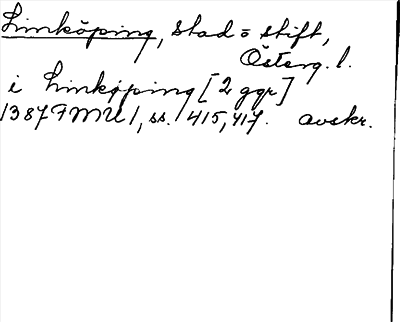 Linköping, stad o stift,
Österg. l.
i Linkøping [2 ggr]
1387 FMU 1, ss. 415, 417. avskr.